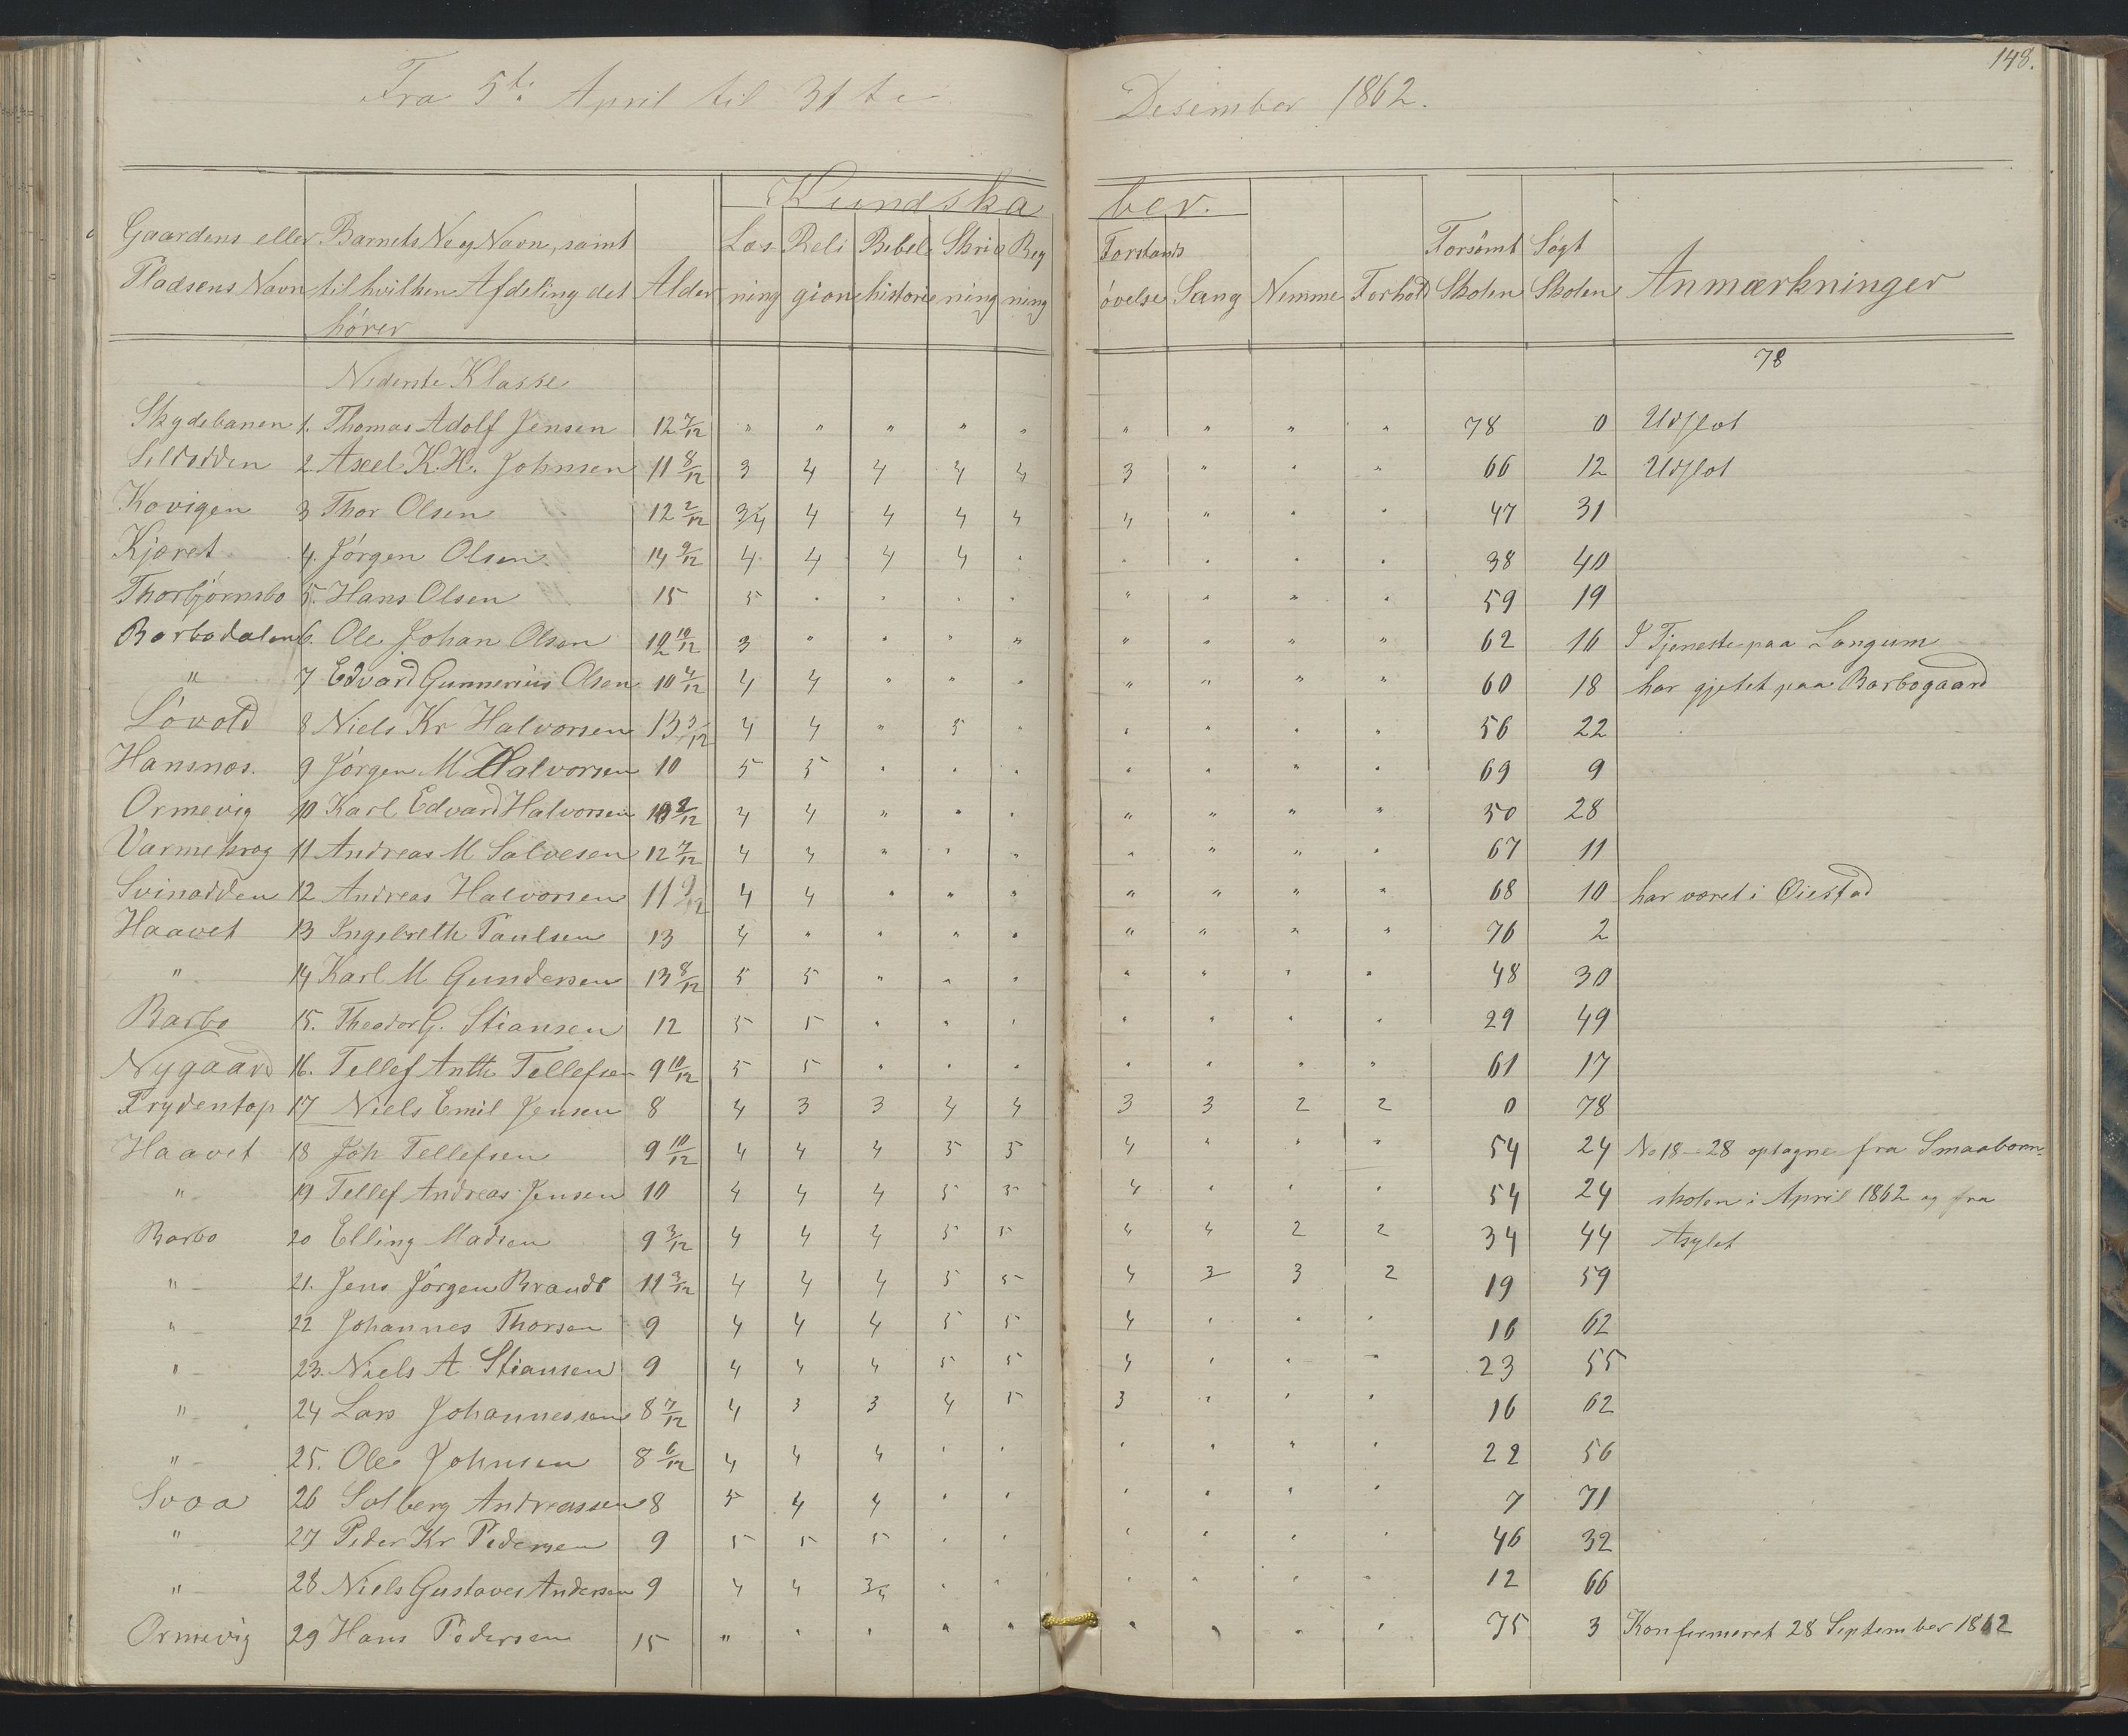 148.
Fra 5te April til 31te Desember 1862.
Kundskaber.
Gaardens eller Pladsens Navn | Barnets No og Navn, samt til hvilken Afdeling det hører | Alder | Læsning | Religion | Bibelhistorie | Skrivning | Regning | Forstandsövelse | Sang | Nemme | Forhold | Forsömt Skolen | Sögt Skolen | Anmærkninger
Nederste Klasse | 78
Skydebanen 1. Thomas Adolf Jensen 12 7/12 " " " " " " " " " 78 0 Udslet
Sildodden 2. Axel K.K. Johnsen 11 8/12 3 4 4 4 4 3 " " " 66 12 Udslet
Kovigen 3 Thor Olsen 12 2/12 3/4 4 4 4 4 4 " " " 47 31
Kjæret 4. Jörgen Olsen 14 9/12 4 4 4 4 " " " " " 38 40
Thorbjörnsbo 5. Hans Olsen 15 5 " " " " " " " " 59 19
Barbodalen 6. Ole Johan Olsen 12 10/12 3 " " " " " " " " 62 16 I Tjeneste paa Langum
" 7 Edvard Gunnerius Olsen 10 4/12 4 4 " " " " " " " 60 18 har gjetet paa Barbogaard
Lövold 8 Niels Kr Halvorsen 13 3/12 4 4 " 5 " " " " " 56 22
Hansnæs. 9 Jörgen M Halvorsen 10 5 5 " " " " " " " 69 9
Ormevig 10 Karl Edvard Halvorsen 2/12 4 4 " " " " " " " 50 28
Varmekrog 11 Andreas M Salvesen 12 7/12 4 4 " " " " " " " 67 11
Svinodden 12 Andreas Halvorsen 11 9/12 4 4 " " " " " " " 68 10 har været i Öiestad
Haavet 13 Ingebreth Paulsen 13 4 " " " " " " " " 76 2
" 14 Karl M Gundersen 13 8/12 5 5 " " " " " " " 48 30
Barbo 15. Theodor G. Stiansen 12 5 5 " " " " " " " 29 49
Nygaard 16. Tellef Anth Tellefsen 9 10/12 5 5 " " " " " " " 61 17
Frydentop 17 Niels Emil Jensen 8 4 3 3 4 4 3 3 2 2 0 78
Haavet 18 Joh Tellefsen 9 10/12 4 4 4 5 5 4 " " " 54 24 No 18-28 optagne fra Smaabörn-
" 19 Tellef Andreas Jensen 10 4 4 4 5 5 4 " " " 54 24 skolen i April 1862 og fra
Barbo 20 Elling Madsen 9 3/12 4 4 4 5 5 4 4 2 2 34 44 Asylet
" 21. Jens Jörgen Brandt 11 3/12 4 4 4 5 5 4 3 3 2 19 59
" 22 Johannes Thorsen 9 4 4 4 5 5 4 " " " 16 62
" 23. Niels A Stiansen 9 4 4 4 5 5 4 " " " 23 55
" 24 Lars Johannessen 8 7/12 4 3 3 4 5 3 " " " 16 62
" 25. Ole Johnsen 8 6/12 4 4 4 " " " " " " 22 56
Svaa 26 Solberg Andreassen 8 5 4 4 " " " " " " 7 71
" 27 Peder Kr Pedersen 9 5 5 5 " " " " " " 46 32
" 28 Niels Gustaves Andersen 9 4 4 3/4 " " " " " " 12 66
Ormevig 29 Hans Pedersen 15 " " " " " " " " " 75 3 Konfirmeret 28 September 1862